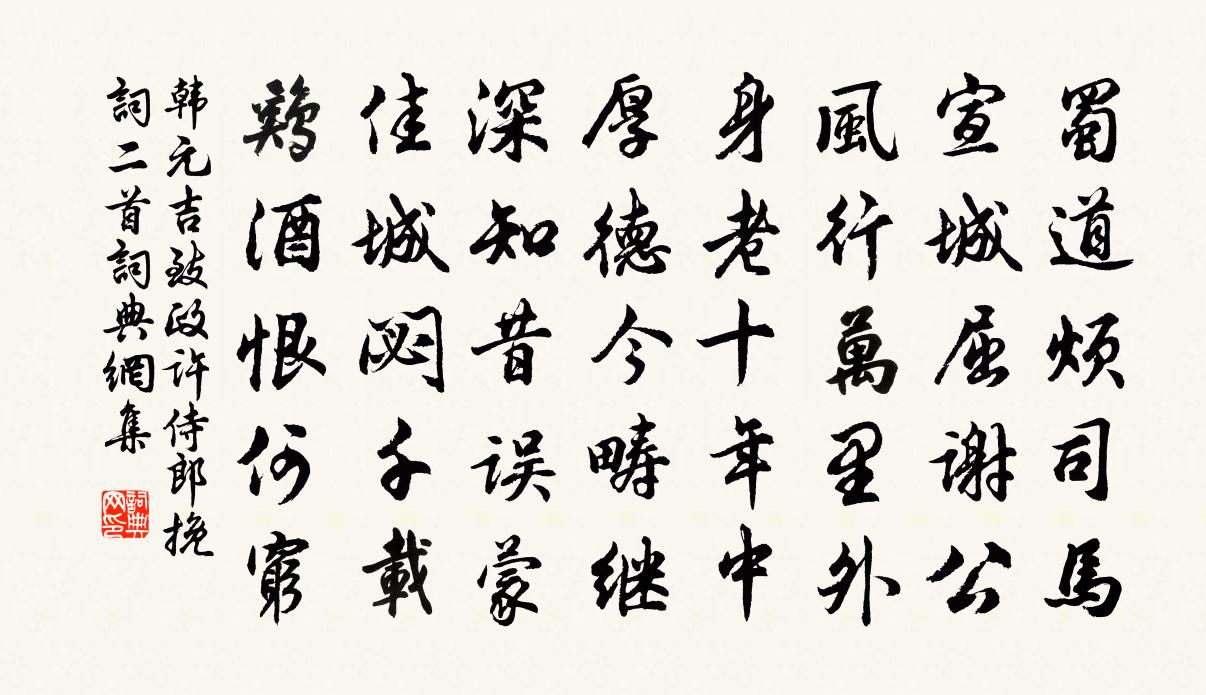 蜀道烦司馬
宣城屈谢公
風行萬里外
身老十年中
厚德今畴继
深知昔误蒙
佳城閟千載
鷄酒恨何窮
韩元吉致政许侍郎挽
詞二首詞典網集
詞典网印